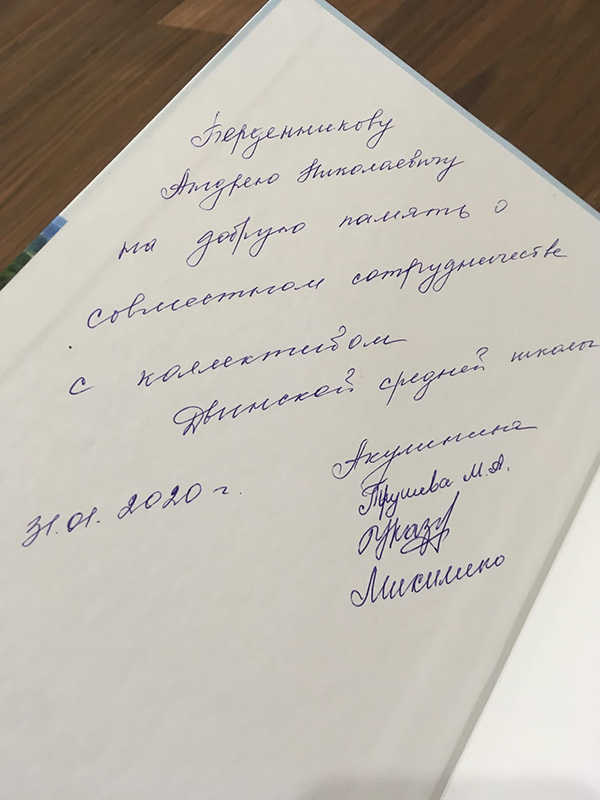 Берденникову
Андрею Николаевичу
на добрую память о
совместном сотрудничестве
с коллективом
Двинской средней школы
Акулинина
Трушева М.А.
31.01.2020 г.